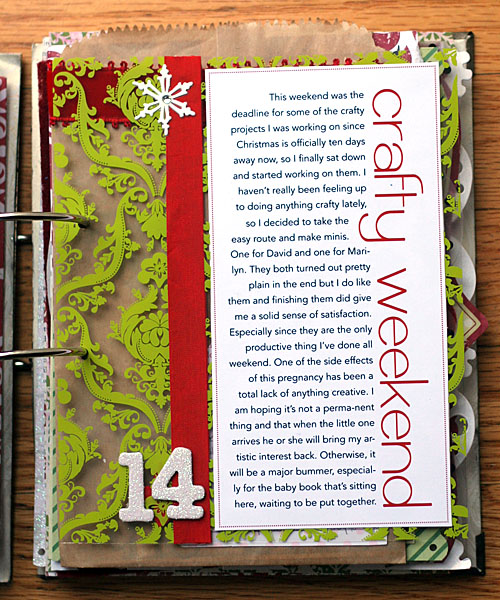 This weekend was the
deadline for some of the crafty
projects I was working on since
Christmas is officially ten days
away now, so I finally sat down
and started working on them. I
haven't really been feeling up
to doing anything crafty lately,
so I decided to take the
easy route and make minis.
One for David and one for Mari-
lyn. They both turned out pretty
plain in the end but I do like
them and finishing them did give
me a solid sense of satisfaction.
Especially since they are the only
productive thing I've done all
weekend. One of the side effects
of this pregnancy has been a
total lack of anything creative. I
am hoping it's not a perma-nent
thing and that when the little one
arrives he or she will bring my ar-
tistic interest back. Otherwise, it
will be a major bummer, especial-
ly for the baby book that's sitting
here, waiting to be put together.
crafty weekend
14